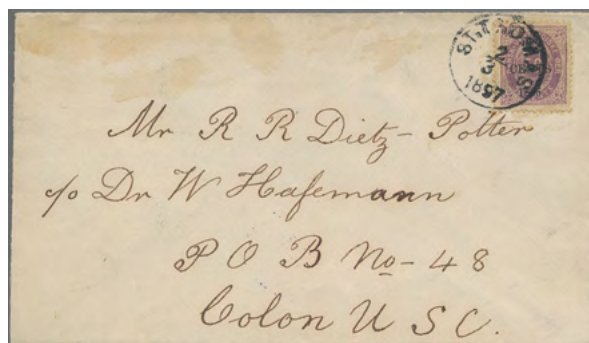 ST. THOMAS
2
3
1897
CENTS
Mr R R Dietz-Potter
c/o Dr W Hafemann
P O B No-48
Colon U S C.